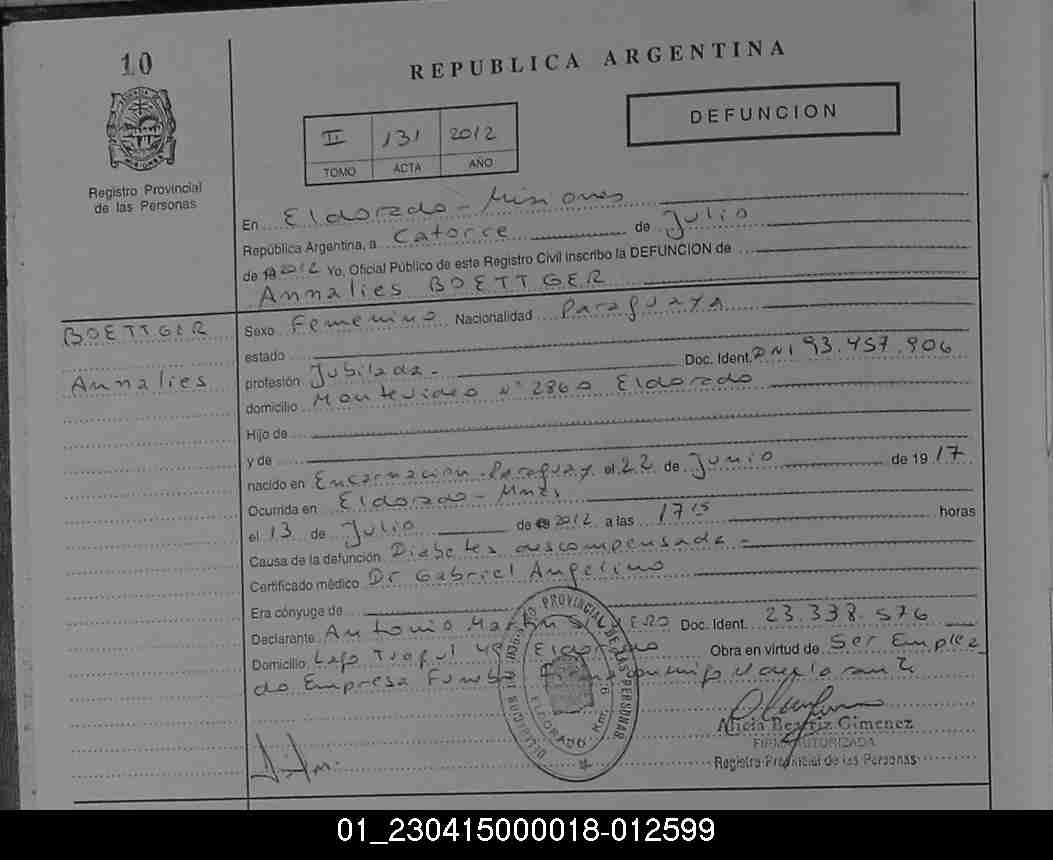 10
REPUBLICA ARGENTINA
II 131 2012
TOMO ACTA AÑO
DEFUNCION
Registro Provincial
de las Personas
En Eldorado - Misiones
República Argentina, a Catorce de Julio
de 19 2012 Yo, Oficial Público de este Registro Civil inscribo la DEFUNCION de
Annalies BOETTGER
BOETTGER
Annalies
Sexo Femenino Nacionalidad Paraguaya
estado
profesión Jubilada - Doc. Ident. DNI 93.457.906
domicilio Montevideo N° 2860 Eldorado
Hijo de
y de
nacido en Encarnación - Paraguay el 22 de Junio de 19 17
Ocurrida en Eldorado - Mnes
el 13 de Julio de 2012 a las 17 15 horas
Causa de la defunción Diabetes descompensada -
Certificado médico Dr Gabriel Angelino
Era cónyuge de
Declarante Antonio Martin Doc. Ident. 23.338.576
Domicilio Lago Eldorado Obra en virtud de Ser Emplea
do Empresa Funebre Firma conmigo el declarante
DISPOSICION PROVINCIAL DE LAS PERSONAS
ELDORADO
Alicia Beatriz Gimenez
FIRMA AUTORIZADA
Registro Provincial de las Personas
01_230415000018-012599